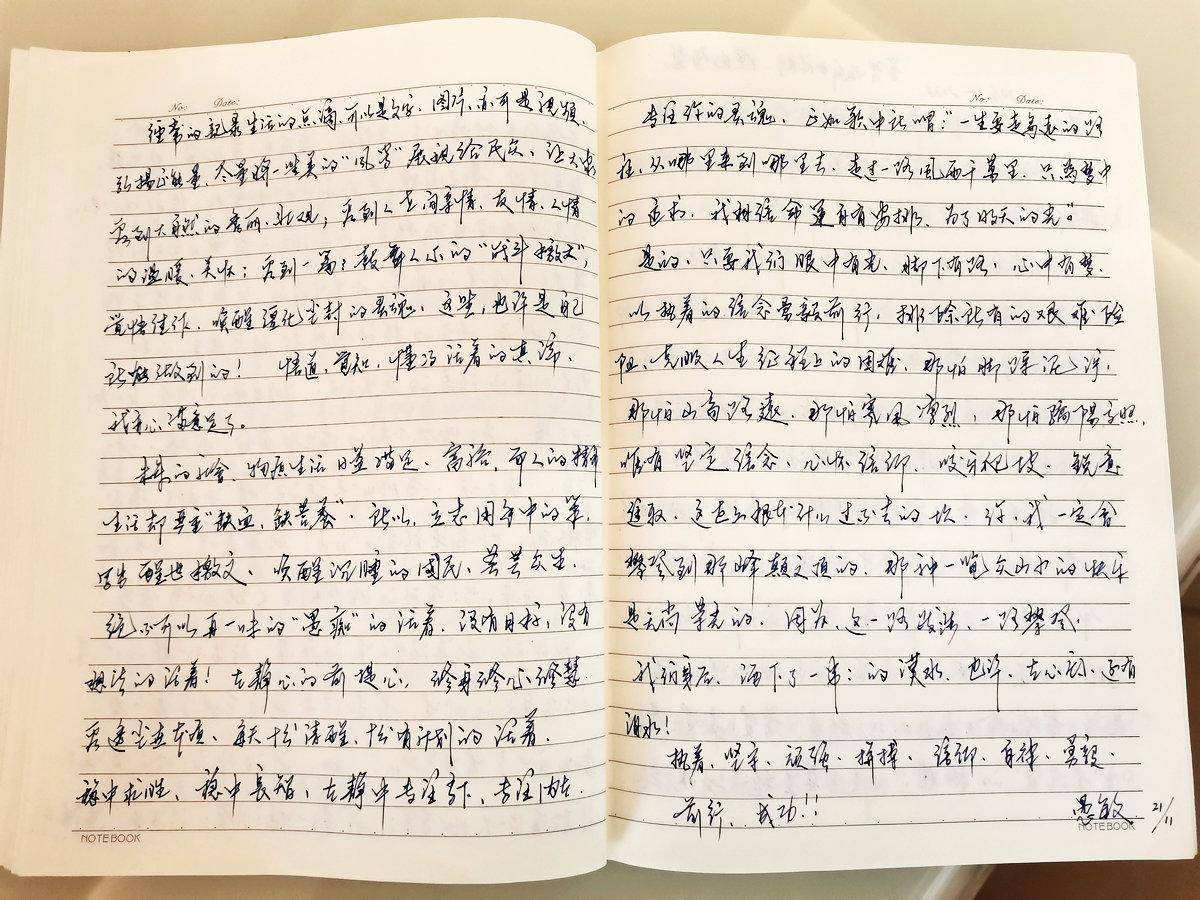 No: Date:
经常的记录生活的点滴,可以是文字、图片、亦可是视频,
弘扬正能量,尽量将一些美的“风景”展现给民众,让大家
看到大自然的秀丽、壮观;看到人世间亲情、友情、人情
的温暖、关怀;看到一篇篇鼓舞人心的“战斗檄文”,
觉悟佳作,唤醒僵化尘封的灵魂,这些,也许是自己
所能做到的! 悟道,省知,懂得活着的真谛,
我亦心满意足了。
未来的社会,物质生活日益满足、富裕,而人的精神
生活却严重“缺血,缺营养”,所以,立志用手中的笔,
写出醒世檄文、唤醒沉睡的国民、芸芸众生,
绝不可以再一味的“愚痴”的活着,没有目标,没有
想法的活着!在静心的前提下,修身修心修慧,
看透尘世本质,每天十分清醒,十分有计划的活着,
稳中求胜、稳中长智,在静中专注当下、专注内在、
NOTEBOOK
No: Date:
专注你的灵魂,正如歌中所唱:“一生要走多远的路
程,从哪里来到哪里去,走过一路风雨千万里,只为梦中
的追求,我相信命运自有安排,为了明天的光”。
是的,只要我们眼中有光、脚下有路、心中有梦,
以执着的信念勇毅前行,排除所有的艰难险
阻,克服人生征程上的困难,那怕脚踩泥泞,
那怕山高路远,那怕寒风凛烈,那怕骄阳高照,
唯有坚定信念、心怀信仰、咬牙爬坡、锐意
进取,这世上根本没什么过不去的坎,你,我一定会
攀登到那峰巅之顶的,那种一览众山小的快乐
是无尚荣光的,因为,这一路跋涉,一路攀登,
我们身后,洒下了一串串的汗水,也许,在心底,还有
泪水!
执着、坚守、顽强、拼搏、信仰、自律、勇毅、
前行、成功!!
愚敏 21/11
NOTEBOOK